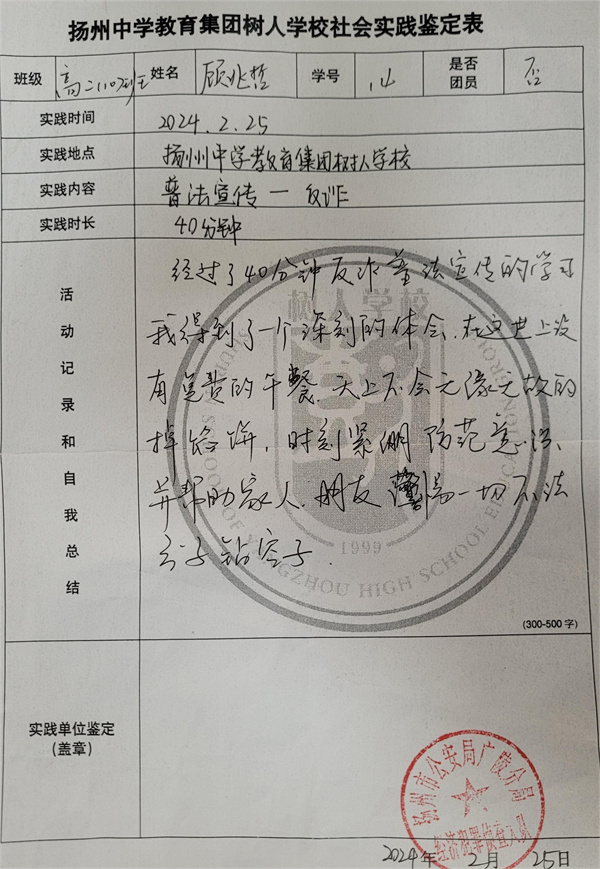 扬州中学教育集团树人学校社会实践鉴定表
班级 高二(10)班 姓名 顾兆哲 学号 14 是否团员 否
实践时间 2024.2.25
实践地点 扬州中学教育集团树人学校
实践内容 普法宣传 — 反诈
实践时长 40分钟
活动记录和自我总结
经过了40分钟反诈普法宣传的学习
我得到了一个深刻的体会.在这世上没
有免费的午餐.天上不会无缘无故的
掉馅饼,时刻紧绷防范意识
并帮助家人.朋友警惕一切不法
分子钻空子.
1999
(300-500字)
实践单位鉴定
(盖章)
扬州市公安局广陵分局
经济犯罪侦查大队
2024年 2月 25日